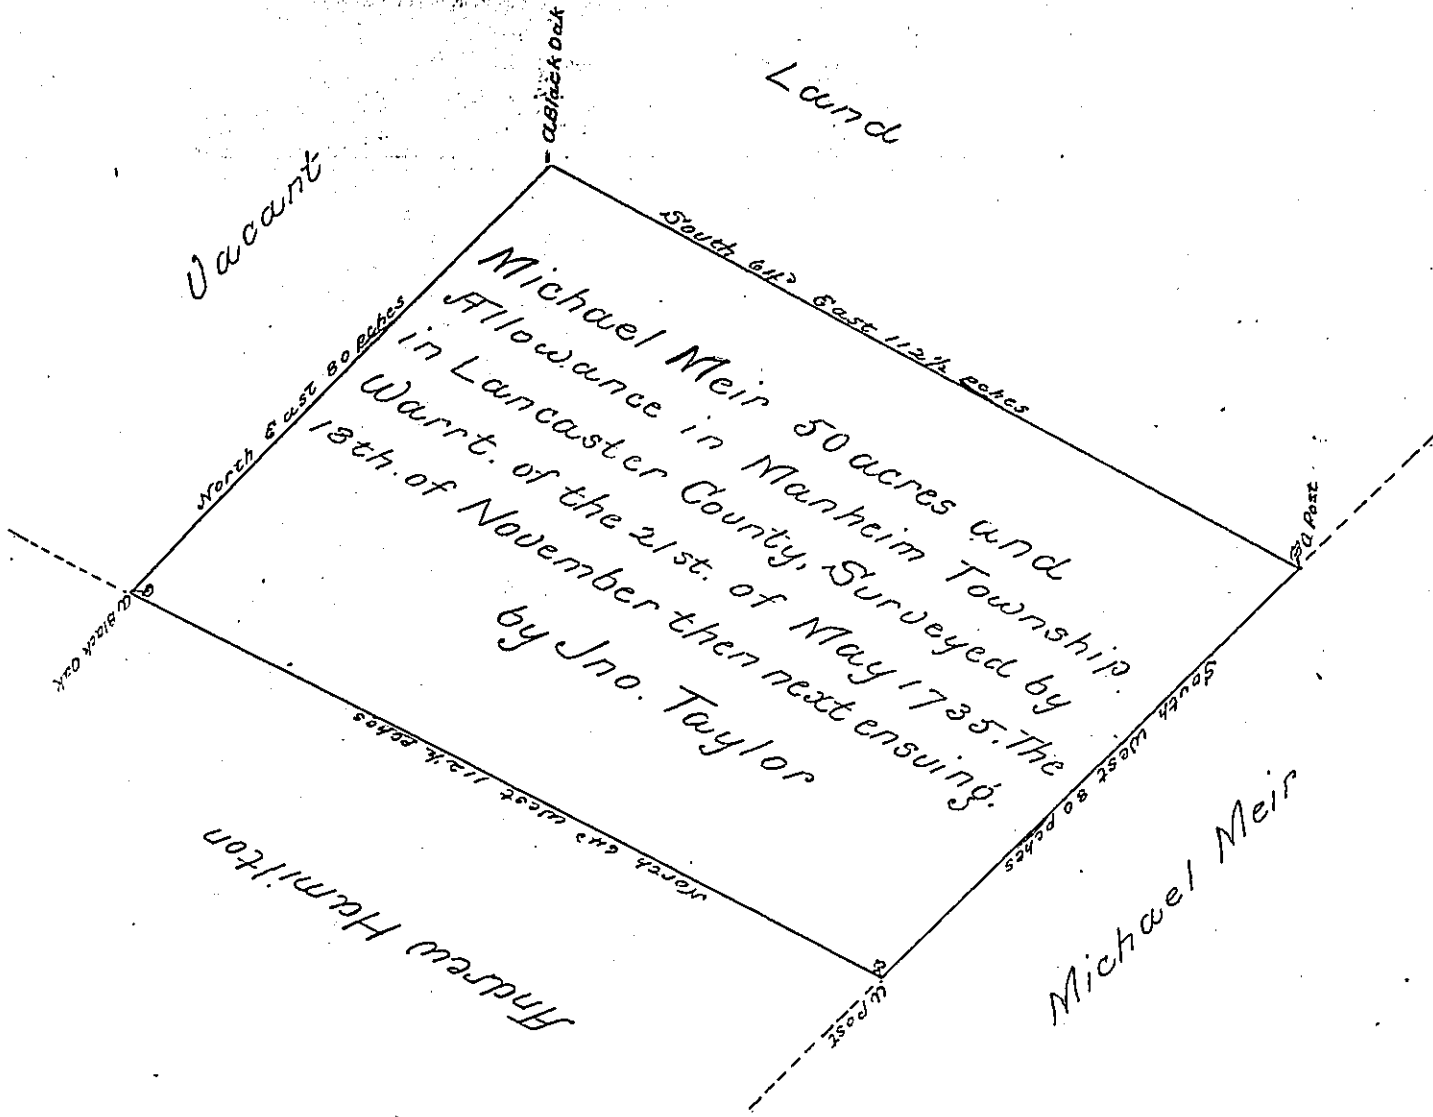 a Black Oak
Land
Vacant
South 64° East 112½ pches
North East 80 pches
Michael Meir 50 acres and
Allowance in Manheim Township
in Lancaster County, Surveyed by
Warrt. of the 21st. of May 1735. The
13th. of November then next ensuing.
by Jno. Taylor
a Post
a Black Oak
South West 80 pches
North 64° West 112½ pches
Michael Meir
Andrew Hamilton
a post